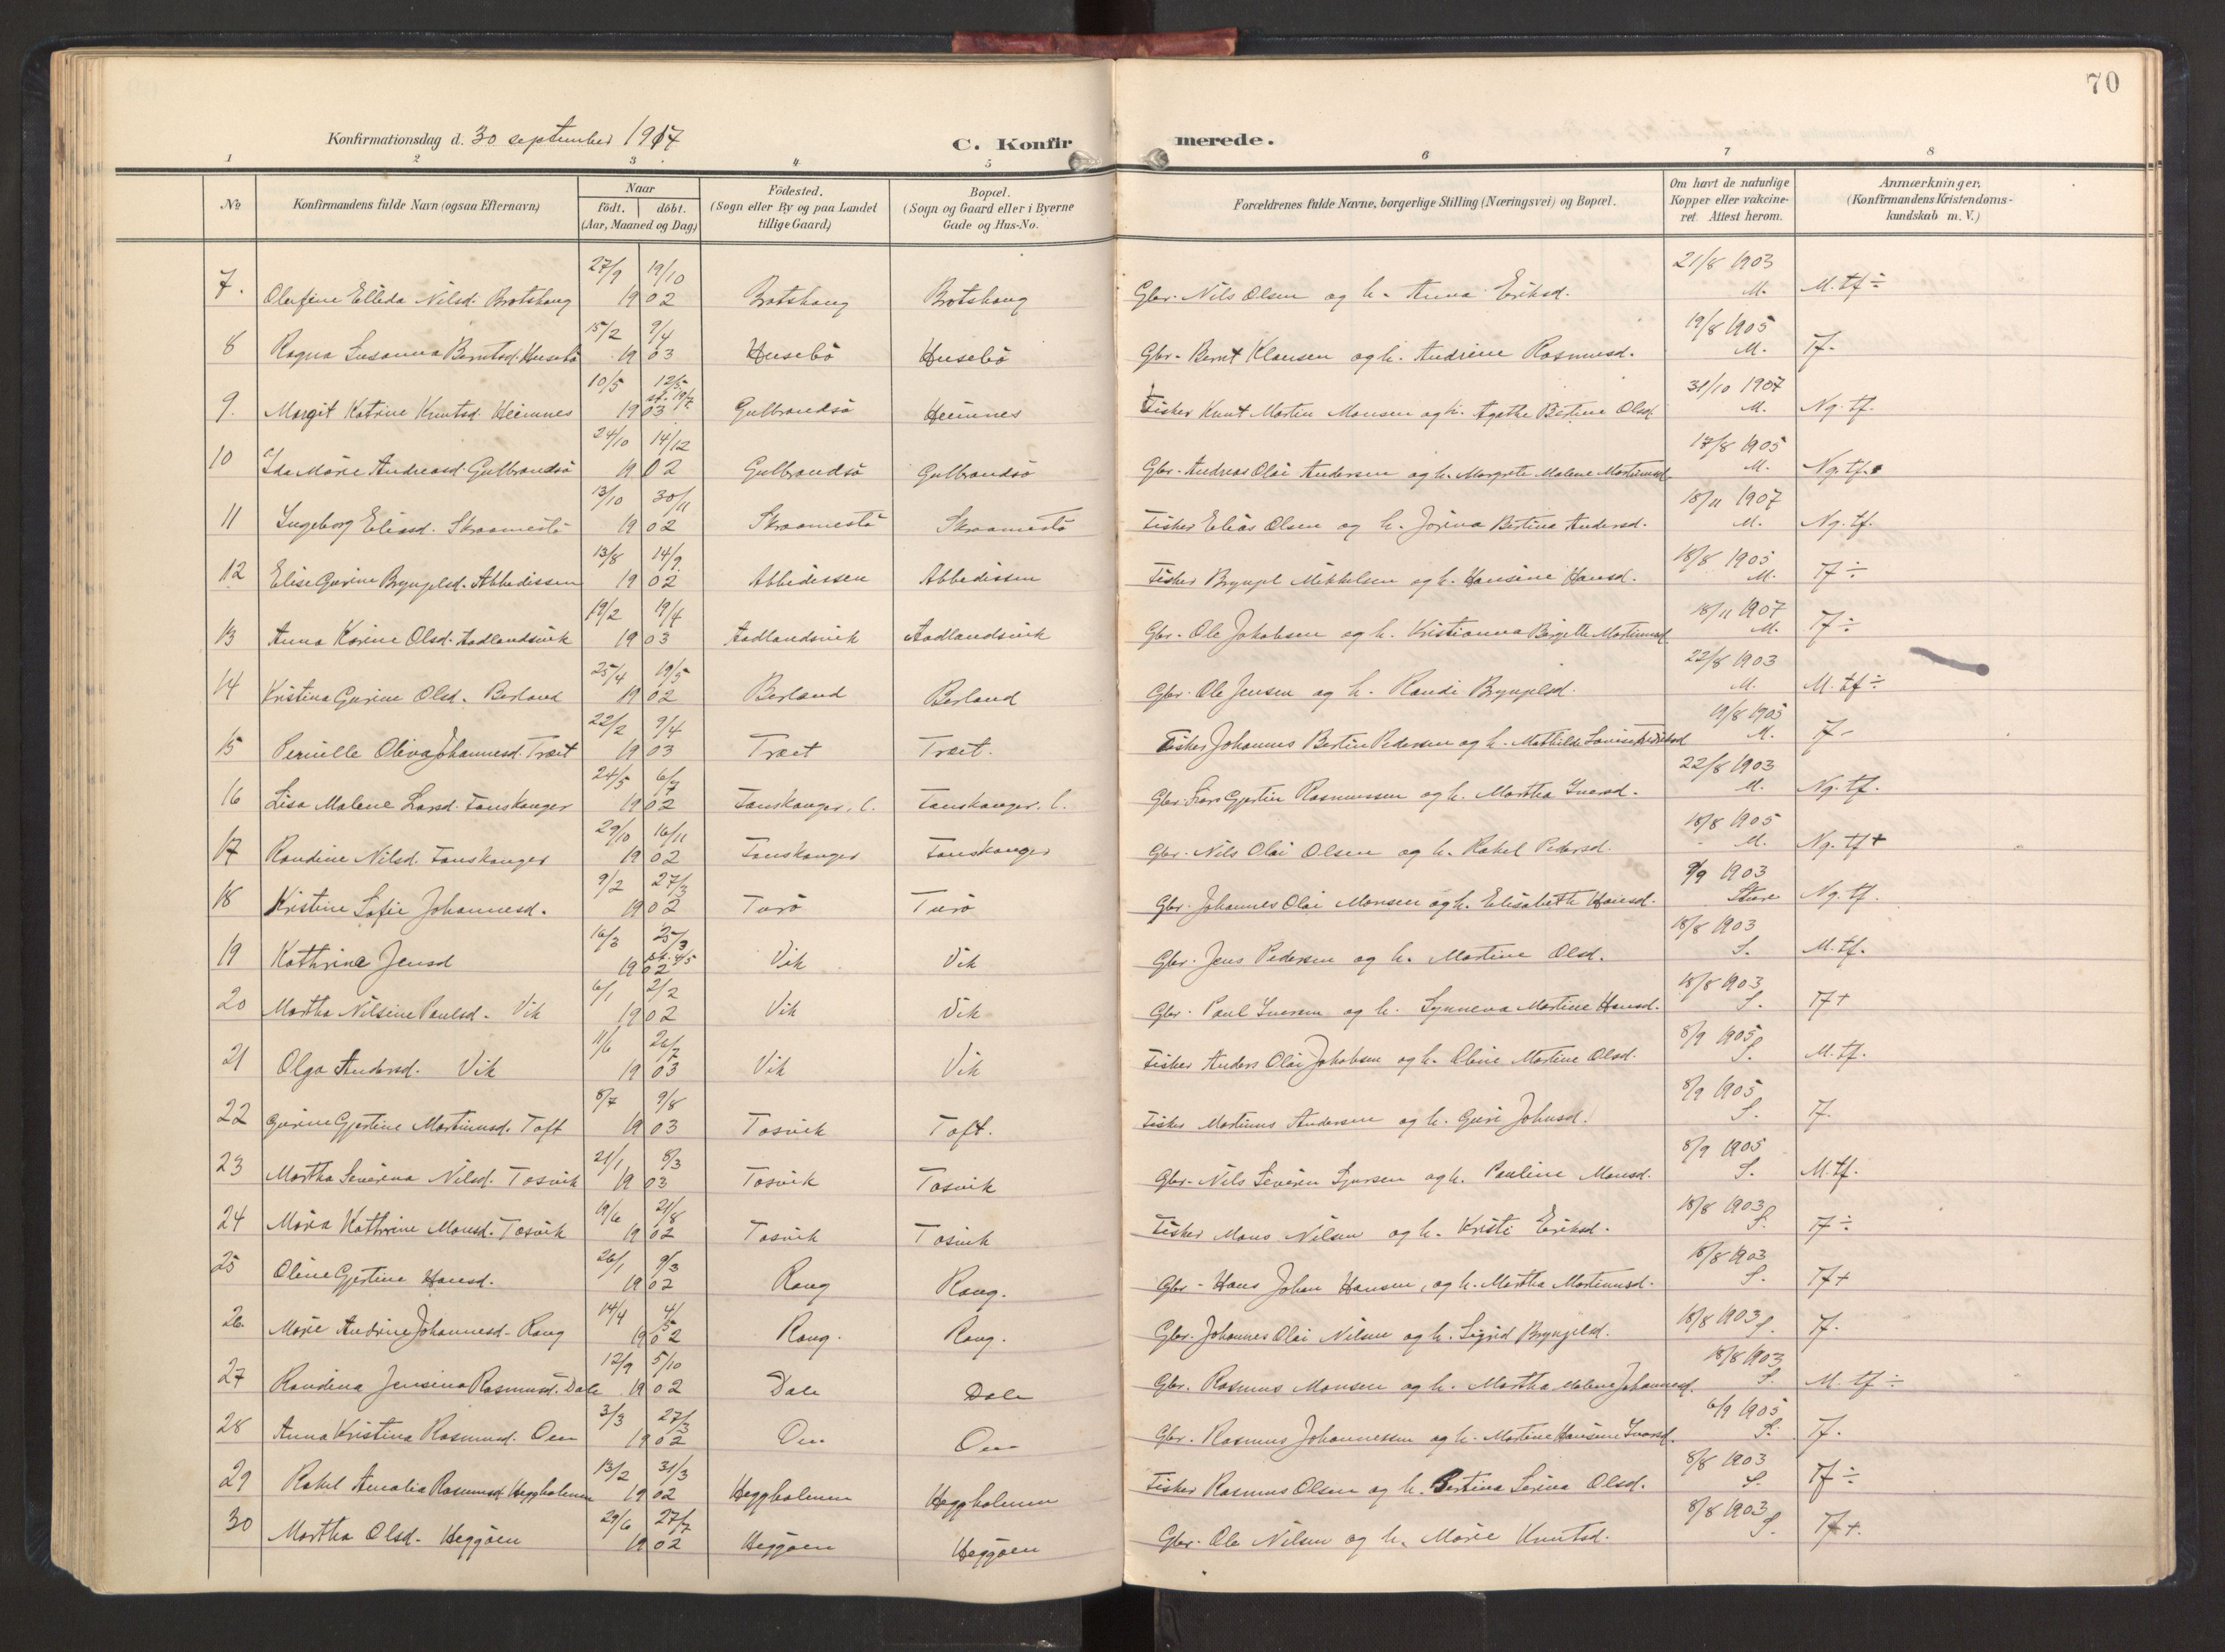 70
Konfirmationsdag d. 30 september 1917
C. Konfirmerede.
1 2 3 4 5 6 7 8
No
Konfirmandens fulde Navn (ogsaa Efternavn)
Naar
födt. döbt.
(Aar, Maaned og Dag)
Födested.
(Sogn eller By og paa Landet
tillige Gaard)
Bopæl.
(Sogn og Gaard eller i Byerne
Gade og Hus-No.
Forældrenes fulde Navne, borgerlige Stilling (Næringsvei) og Bopæl.
Om havt de naturlige
Kopper eller vakcine-
ret. Attest herom.
Anmærkninger.
(Konfirmandens Kristendoms-
kundskab m. V.)
7. Olufine Elleda Nilsd. Brotshaug 27/9 19/10 1902 Brotshaug Brotshaug Gbr. Nils Olsen og h. Anna Eriksd. 21/8 1903 M. M. tf ÷
8 Ragna Susanna Berntsd. Husebö 15/2 9/4 1903 Husebö Husebö Gbr. Bernt Klausen og h. Andrine Rasmusd. 19/8 1905 M. Tf.
9. Margit Katrine Knutsd. Heimnes 10/5 12/5 1903 Gulbrandsö Heimnes Fisker Knut Martin Monsen og h. Agathe Bertine Olsd 31/10 1907 M. Ng. tf.
10 Ida Marie Andreasd. Gulbrandsö 24/10 14/12 1902 Gulbrandsö Gulbrandsö Gbr. Andreas Olai Andersen og h. Margrete Malene Martinusd. 17/8 1905 M. Ng. tf.
11 Ingeborg Eliasd. Skraamestö 13/10 30/11 1902 Skraamestö Skraamestö Fisker Elias Olsen og h. Jorina Bertina Andersd. 18/11 1907 M. Ng. tf.
12 Elise Gurine Brynjelsd. Abbedissen 13/8 14/9 1902 Abbedissen Abbedissen Fisker Brynjel Mikkelsen og h. Hansine Hansd. 18/8 1905 M. Tf ÷
13 Anna Karine Olsd. Aadlandsvik 19/2 19/4 1903 Aadlandsvik Aadlandsvik Gbr. Ole Jakobsen og h. Kristianna Birgitte Martinusd 18/11 1907 M. Tf ÷
14 Kristina Gurine Olsd. Berland 25/4 19/5 1902 Berland Berland Gbr. Ole Jensen og h. Randi Brynjelsd. 22/8 1903 M. M. tf ÷
15 Pernille Oliva Johannesd. Træt 22/2 9/4 1903 Træt Træt. Fisker Johannes Bertin Pedersen og h. Mathilde Lovise 19/8 1905 M. Tf
16 Lisa Malene Larsd. Fanskanger 24/5 6/7 1902 Fanskanger. l. Fanskanger. l. Gbr. Lars Gjertin Rasmussen og h. Martha Iversd. 22/8 1903 M. Ng. tf.
17 Randine Nilsd. Fanskanger 29/10 16/11 1902 Fanskanger Fanskanger Gbr. Nils Olai Olsen og h. Rakel Pedersd. 18/8 1905 M. Ng. tf +
18 Kristine Sofie Johannesd. 9/2 27/3 1902 Turö Turö Gbr. Johannes Olai Monsen og h. Elisabeth Hansd. 9/9 1903 Sture Ng. tf.
19 Kathrine Jensd 16/3 25/3 st. 4/5 1902 Vik Vik Gbr. Jens Pedersen og h. Martine Olsd. 18/8 1903 S. M. tf.
20 Martha Nilsine Paulsd. Vik 6/1 2/2 1902 Vik Vik Gbr. Paul Iversen og h. Synneva Martine Hansd. 18/8 1903 S. Tf +
21 Olga Andersd. Vik 11/6 26/7 1903 Vik Vik Fisker Anders Olai Jakobsen og h. Oline Martine Olsd. 8/9 1905 S. M. tf.
22 Gurine Gjertine Martinusd. Toft 8/7 9/8 1903 Tosvik Toft. Fisker Martinus Andersen og h. Guri Johnsd. 8/9 1905 S. Tf.
23 Martha Severina Nilsd. Tosvik 21/1 8/3 1903 Tosvik Tosvik Gbr. Nils Severin Sjursen og h. Pauline Monsd. 8/9 1905 S. M. tf.
24 Maria Kathrine Monsd. Tosvik 19/6 21/8 1902 Tosvik Tosvik Fisker Mons Nilsen og h. Kristi Eriksd. 18/8 1903 S. Tf ÷
25 Oline Gjertine Hansd. 26/1 9/3 1902 Rong Rong. Gbr. Hans Johan Hansen, og h. Martha Martinusd. 18/8 1903 S. Tf +
26. Marie Andrine Johannesd. Rong 14/4 4/5 1902 Rong. Rong. Gbr. Johannes Olai Nilsen og h. Sigrid Brynjelsd. 18/8 1903 S. Tf.
27 Randina Jensina Rasmusd. Dale 12/9 5/10 1902 Dale Dale Gbr. Rasmus Monsen og h. Martha Malena Johannesd. 18/8 1903 S. M. tf ÷
28 Anna Kristina Rasmusd. Oen 3/3 27/3 1902 Oen Oen Gbr. Rasmus Johannessen og h. Martine Hansine Ivarsd. 6/9 1905 S. Tf.
29 Rakel Amalia Rasmusd. Heggholmen 13/2 31/3 1902 Heggholmen Heggholmen Fisker Rasmus Olsen og h. Bertina Serina Olsd. 8/8 1903 S. Tf ÷
30 Martha Olsd. Heggöen 29/6 27/7 1902 Heggöen Heggöen Gbr. Ole Nilsen og h. Marie Knutsd. 8/8 1903 S. Tf +.